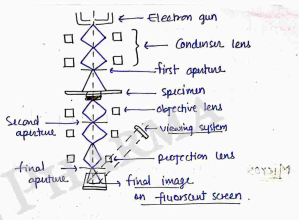 Electron gun
Condenser lens
first aperture
specimen
objective lens
Second
aperture
viewing system
projection lens
final
aperture
final image
on fluorscent screen.